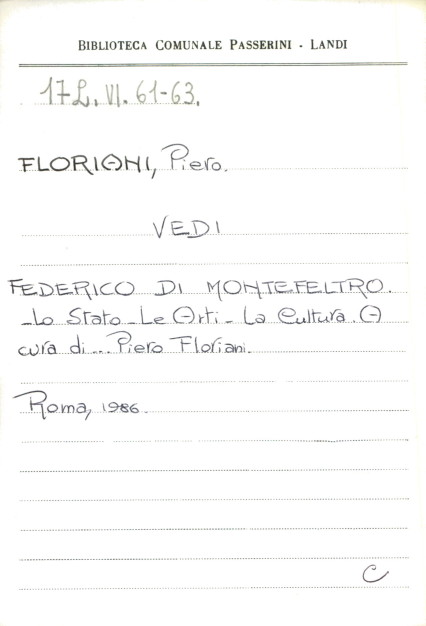 BIBLIOTECA COMUNALE PASSERINI - LANDI
17L.VI.61-63.
FLORIANI, Piero.
VEDI
FEDERICO DI MONTEFELTRO.
-Lo Stato-Le Arti-La Cultura. A
cura di... Piero Floriani.
Roma, 1986.
C